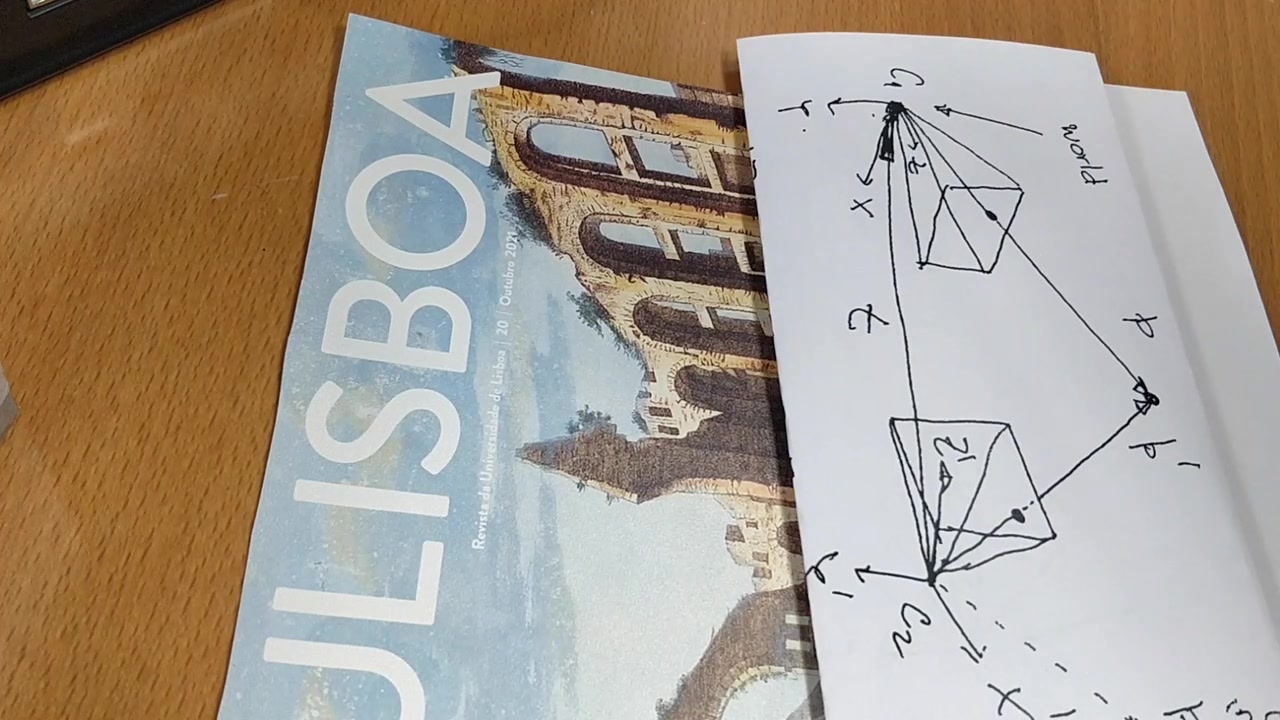 ULISBOA
Revista da Universidade de Lisboa | 20 | Outubro 2021
C1
world
Y
X
z
Z
P
P'
z'
Y'
C2
X